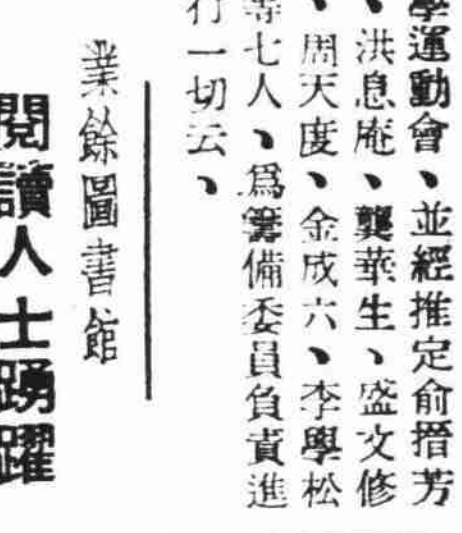 學運動會、並經推定俞搢芳
、洪息庵、龔華生、盛文修
、周天度、金成六、李學松
等七人、爲籌備委員負責進
行一切云、
業餘圖書館
閱讀人士踴躍